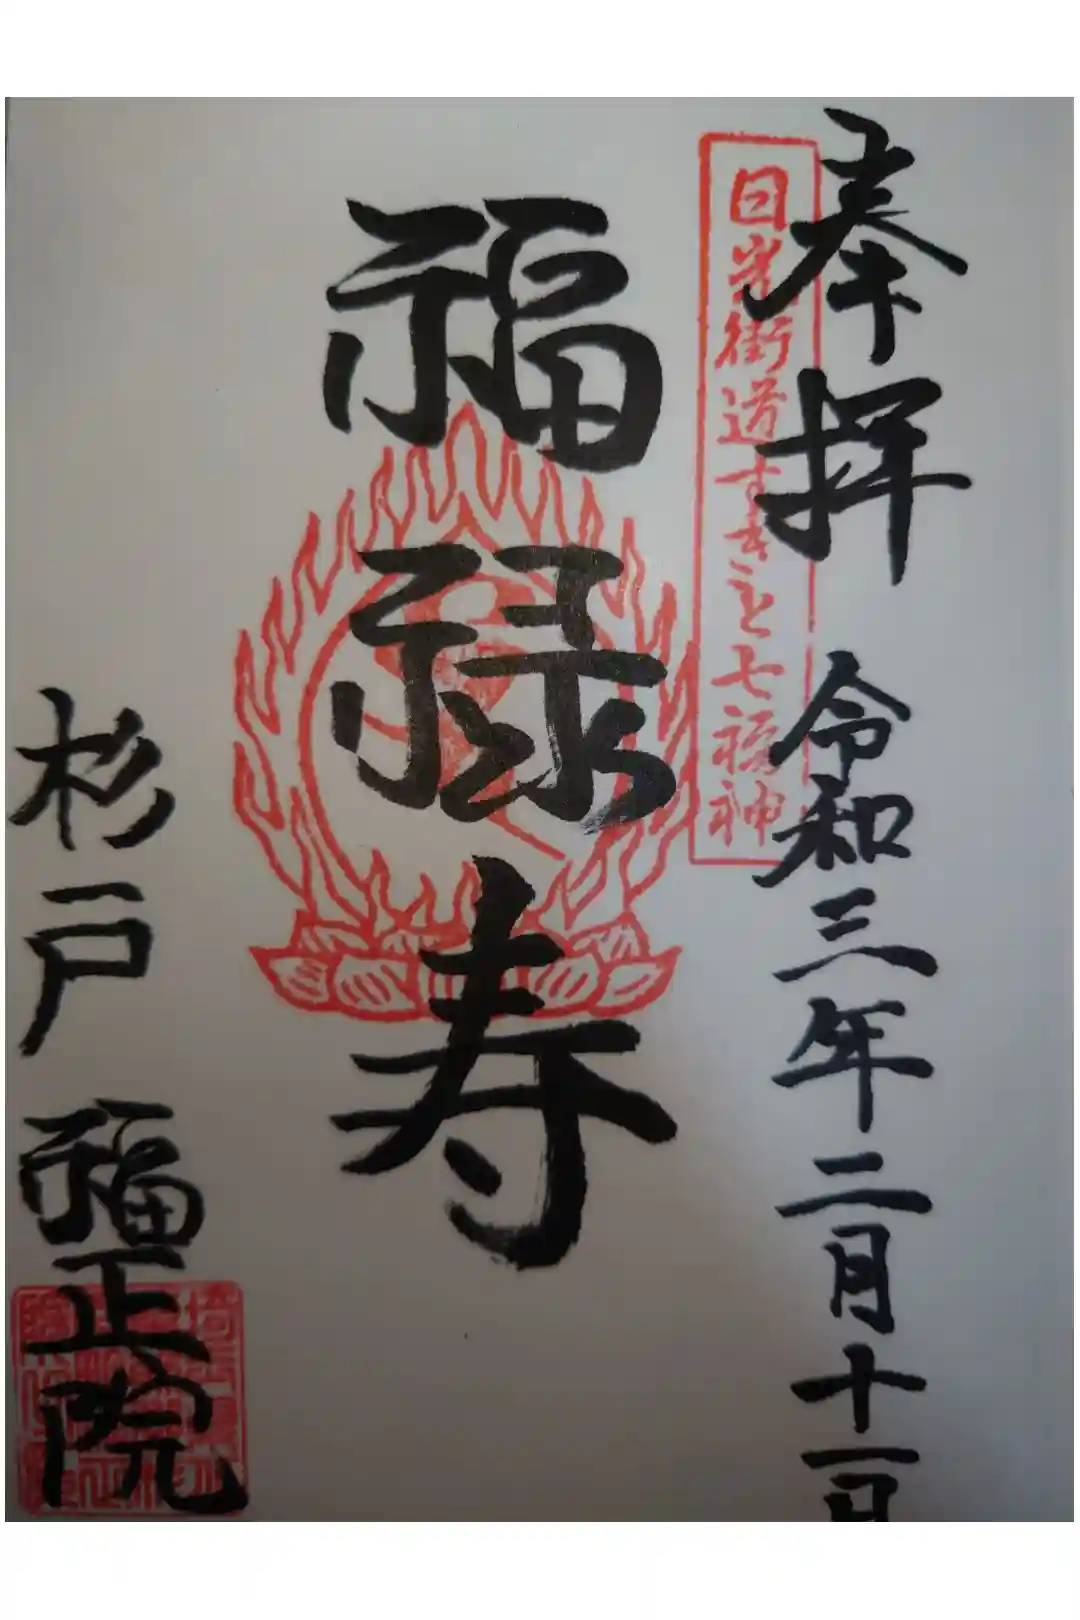 奉拝 令和三年二月十一日
日光街道すぎと七福神
福禄寿
杉戸 福正院